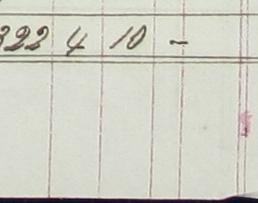 322 4 10 -